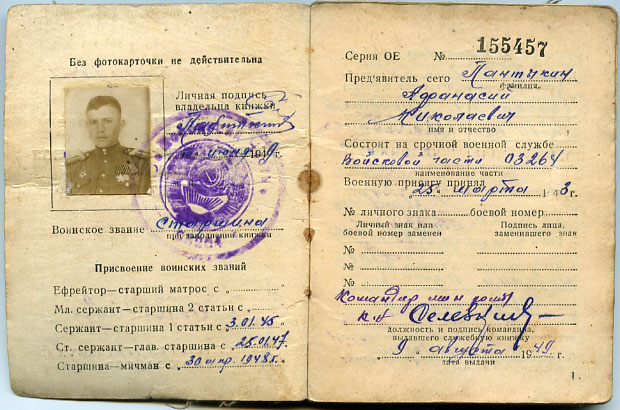 Без фотокарточки не действительна
Личная подпись
владельца книжки
1949 г.
Воинское звание старшина
при заполнении книжки
Присвоение воинских званий
Ефрейтор—старший матрос с „
Мл. сержант—старшина 2 статьи с „
Сержант—старшина 1 статьи с 3.01.45 „
Ст. сержант—глав. старшина с 25.01.47 „
Старшина—мичман с 30 апр. 1948г. „
Серия ОЕ № 155457
Пред'явитель сего Пантюхин
фамилия,
Афанасий
Николаевич
имя и отчество
Состоит на срочной военной службе
Войсковой части 03264
наименование части
Военную присягу принял
25 марта 1943 г.
№ личного знака боевой номер
Личный знак или
боевой номер заменен
Подпись лица,
заменившего знак
№
№
№
Командир мин роты
к-н
должность и подпись командира,
выдавшего служебную книжку
9 августа 1949 г.
дата выдачи
1.